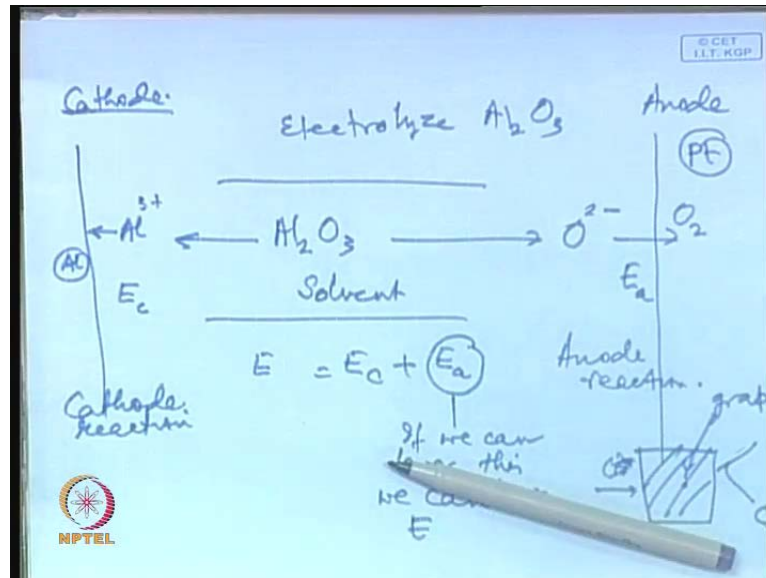 © CET
I.I.T. KGP
Cathode.
Electrolyze Al2O3
Anode
Pt
Al3+ Al2O3 O2- O2
Al
Ec
Solvent
Ea
E = Ec + Ea
Cathode reaction
Anode reaction.
If we can
this
we can
E
NPTEL